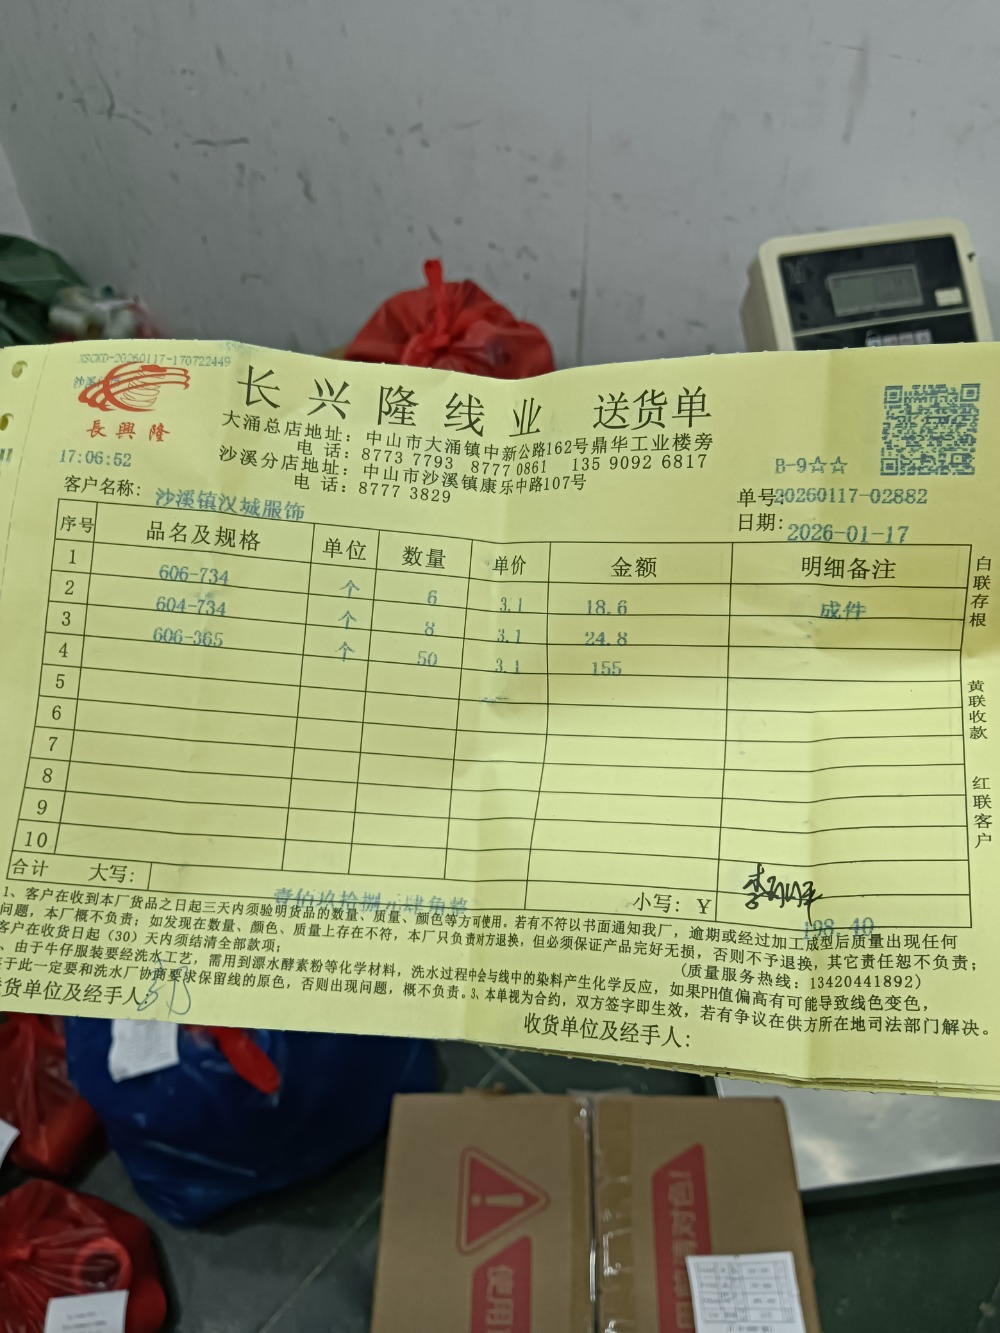 XSCKD-20260117-170722449
長興隆
长兴隆线业 送货单
大涌总店地址：中山市大涌镇中新公路162号鼎华工业楼旁
电 话：8773 7793 8770 0861 135 9092 6817
沙溪分店地址：中山市沙溪镇康乐中路107号
电 话：8777 3829
B-9☆☆
17:06:52
客户名称：沙溪镇汉城服饰
单号20260117-02882
日期：2026-01-17
序号 品名及规格 单位 数量 单价 金额 明细备注
1 606-734 个 6 3.1 18.6 成件
2 604-734 个 8 3.1 24.8
3 606-365 个 50 3.1 155
4
5
6
7
8
9
10
合计 大写：壹佰玖拾捌元肆角整 小写：￥198.40
白联存根
黄联收款
红联客户
1、客户在收到本厂货品之日起三天内须验明货品的数量、质量、颜色等方可使用。若有不符以书面通知我厂，逾期或经过加工成型后质量出现任何
问题，本厂概不负责；如发现在数量、颜色、质量上存在不符，本厂只负责对方退换，但必须保证产品完好无损，否则不予退换，其它责任恕不负责；
客户在收货日起（30）天内须结清全部款项；
（质量服务热线：13420441892）
、由于牛仔服装要经洗水工艺，需用到漂水酵素粉等化学材料，洗水过程中会与线中的染料产生化学反应，如果PH值偏高有可能导致线色变色，
于此一定要和洗水厂协商要求保留线的原色，否则出现问题，概不负责。3、本单视为合约，双方签字即生效，若有争议在供方所在地司法部门解决。
货单位及经手人：
收货单位及经手人：
使用